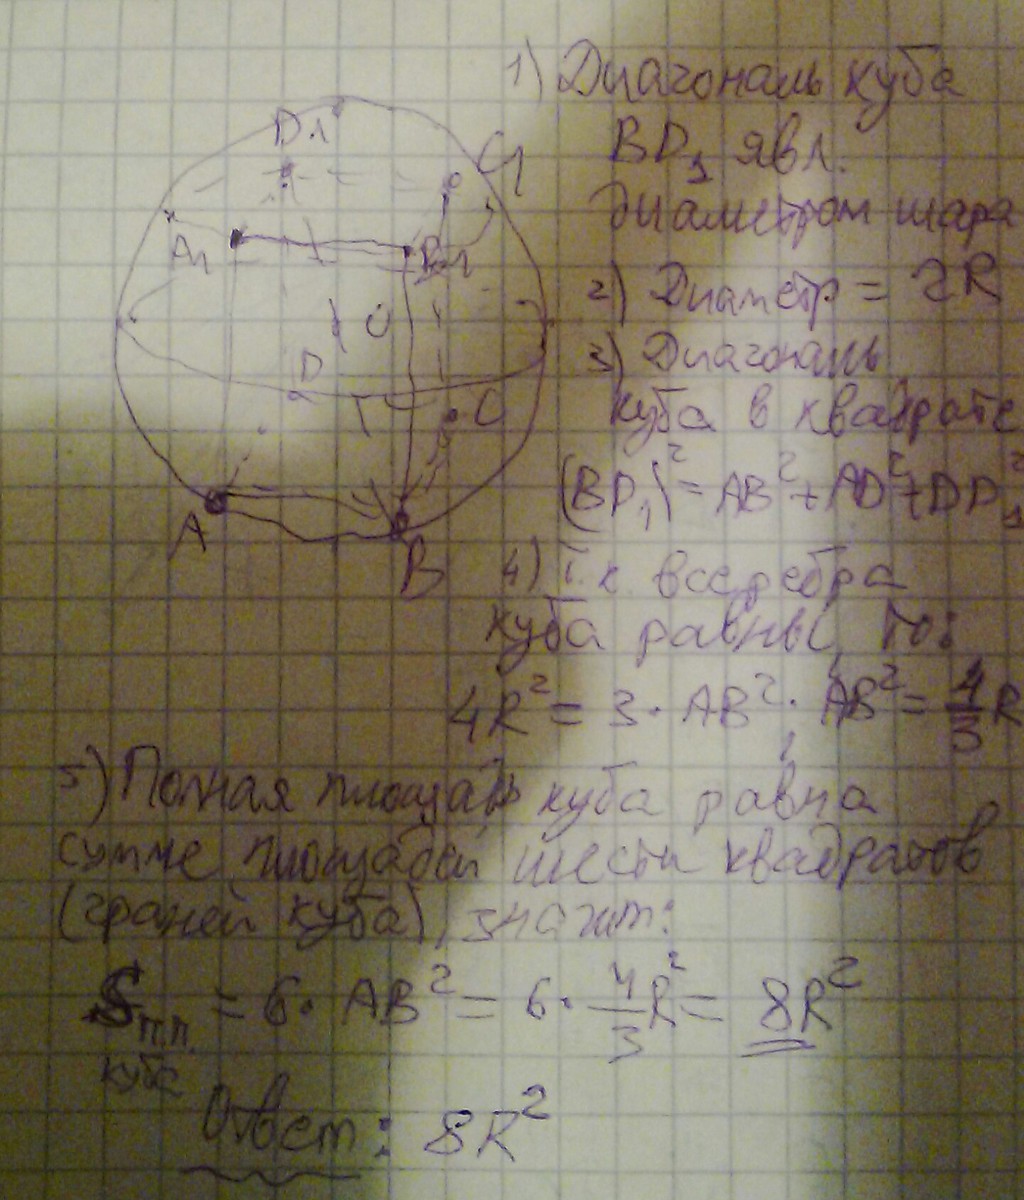 1) Диагональ куба
BD₁ явл.
диаметром шара
2) Диаметр = 2R
3) Диагональ
куба в квадрате
(BD₁)² = AB² + AD² + DD₁²
4) Т.к. все ребра
куба равны, то:
4R² = 3 · AB² · AB² = 4/3 R
5) Полная площадь куба равна
сумме площадей шести квадратов
(граней куба), значит:
Sп.п. куба = 6 · AB² = 6 · 4/3 R² = 8R²
Ответ: 8R²
D₁
C₁
A₁
B₁
O
D
C
A
B